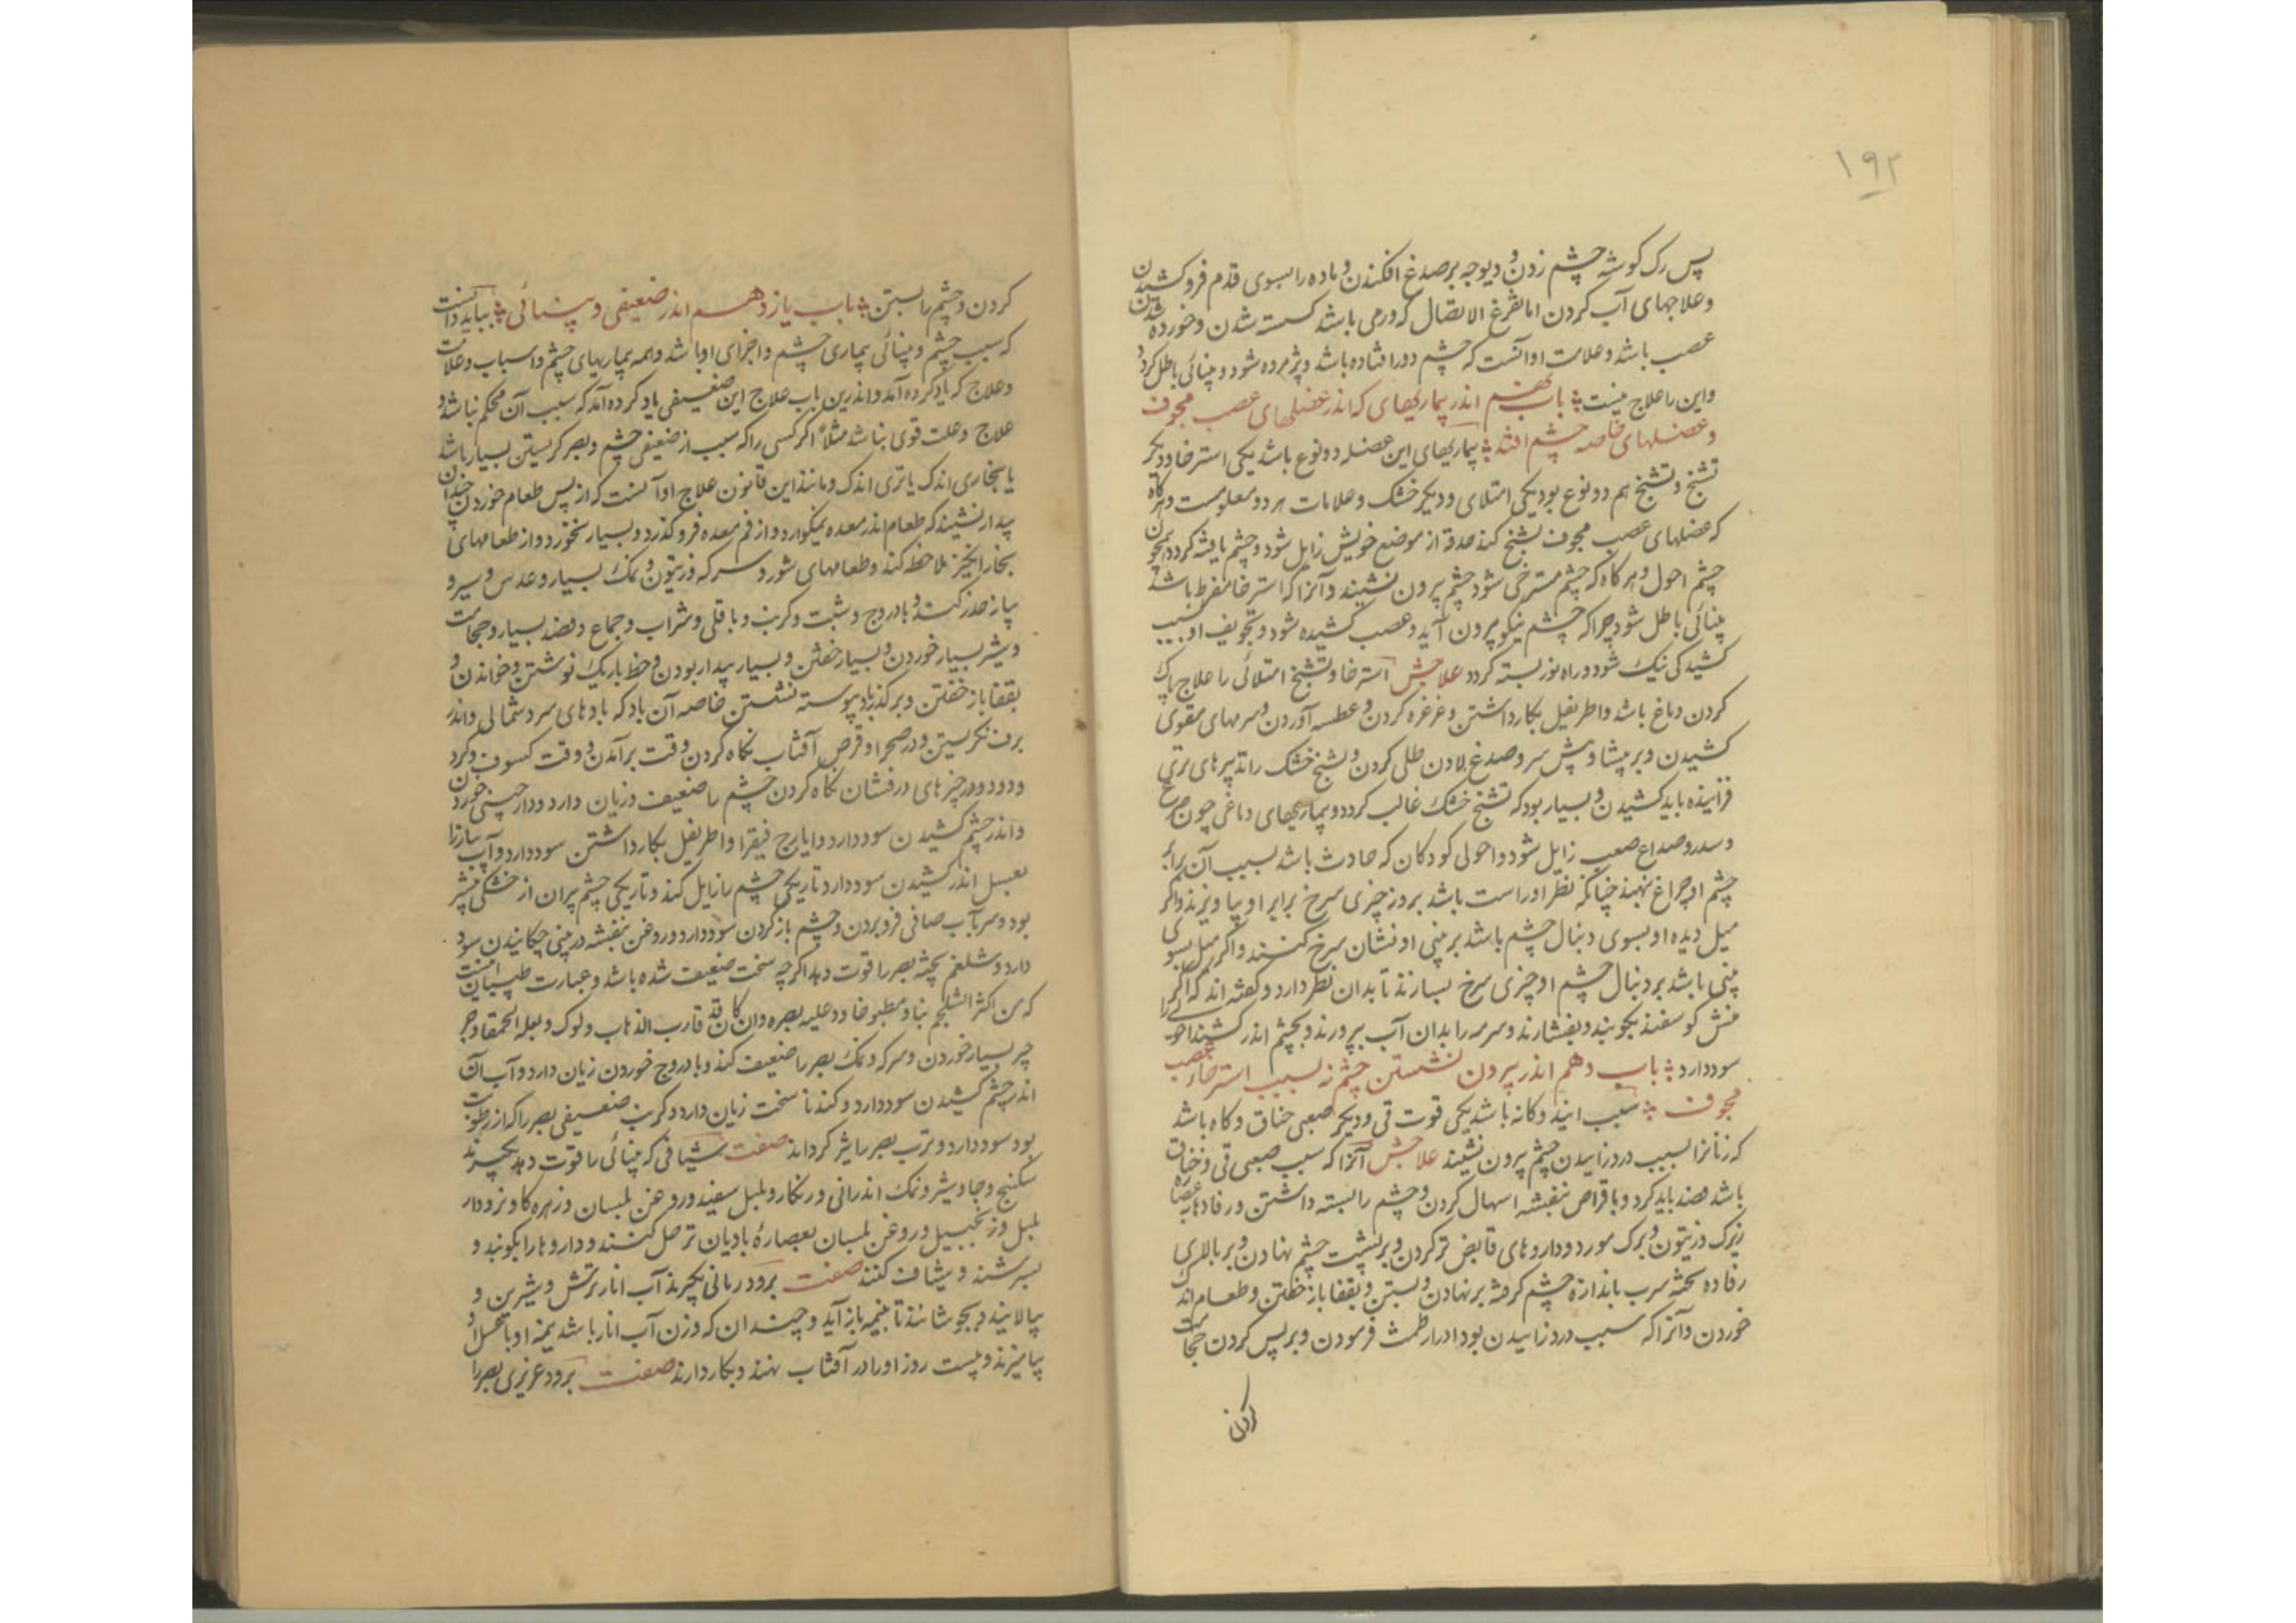 ۱۹۲
پس رک کوشه چشم زدن و دیوجه بر صدغ افکندن و ماده را بسوی قدم فرو کشیدن
وعلاجهای آب کردن اما تفرغ الاتصال که درمی باشد کسسته شدن و خورده شدن
عصب باشد وعلامت او آنست که چشم دور افتاده باشد و پژمرده شود و بینائی باطل کردد
واین را علاج نیست باب نهم اندر بیماریهای که اندر عضلهای عصب مجوف
وعضلهای خاصه چشم افتد بیماریهای این عضله دو نوع باشد یکی استرخا و دیکر
تشنج و تشنج هم دو نوع بود یکی امتلای و دیکر خشک وعلامات هر دو معلومست و هر کاه
که عضلهای عصب مجوف تشنج کند حدقه از موضع خویش زایل شود و چشم یافته کردد همچون
چشم احول و هر کاه که چشم مسترخی شود چشم برون نشیند و آنرا که استرخا مفرط باشد
بینائی باطل شود چرا که چشم نیکو برون آید و عصب کشیده شود و تجویف او بسبب
کشیدکی نیک شود و راه نور بسته کردد علاجش استرخا و تشنج امتلائی را علاج پاک
کردن دماغ باشد واطریفل بکار داشتن و غرغره کردن و عطسه آوردن و سرمهای مقوی
کشیدن و بر پیشا و پیش سر و صدغ لادن طلی کردن و تشنج خشک را تدبیرهای تری
فزاینده باید کشیدن و بسیار بود که تشنج خشک غالب کردد و بیماریهای دماغی چون صرع
وسدر و صداع صعب زایل شود و احولی کودکان که حادث باشد بسبب آن برابر
چشم او چراغ نهند چنانکه نظر او راست باشد بروز چیزی سرخ برابر او بیاویزند و اکر
میل دیده او بسوی دنبال چشم باشد بر بینی او نشان سرخ کنند و اکر میل بسوی
بینی باشد بر دنبال چشم او چیزی سرخ بسازند تا بدان نظر دارد و کفته اند که اکر
منش کوسفند بکوبند و بفشارند و سرمه را بدان آب بپرورند و بچشم اندر کشند احولی را
سود دارد باب دهم اندر برون نشستن چشم نه بسبب استرخاء عصب
مجوف سبب ایند دکانه باشد یکی قوت قی و دیکر صعبی خناق و کاه باشد
که زنانرا بسبب درد زاییدن چشم برون نشیند علاجش آنرا که سبب صعبی قی و خناق
باشد فصد باید کرد و باقراص بنفشه اسهال کردن و چشم را بسته داشتن و رفادها بعصاره
زیرک زیتون و برک مورد و داروهای قابض تر کردن و بر پشت چشم نهادن و بر بالاری
رفاده تخته سرب باندازه چشم کرفته بر نهادن و بستن و بقفا باز خفتن و طعام اندک
خوردن و آنرا که سبب درد زاییدن بود ادرار طمث فرمودن و بر پس کردن حجامت
کردن
کردن و چشم را بستن باب یازدهم اندر ضعیفی و بینائی بباید دانست
که سبب چشم و بینائی بیماری چشم و اجزای او باشد و همه بیماریهای چشم و اسباب وعلامت
وعلاج که یاد کرده آمد و اندرین باب علاج این ضعیفی یاد کرده آمد که سبب آن محکم نباشد و
علاج وعلت قوی نباشد مثلاً اکر کسی را که سبب از ضعیفی چشم و بصر کریستن بسیار باشد
یا بخاری اندک یا تری اندک و مانند این قانون علاج او آنست که از پس طعام خوردن چندان
بیدار نشیند که طعام اندر معده نیکوارد و از فم معده فرو کذرد و بسیار نخورد و از طعامهای
بخار انکیز ملاحظه کند و طعامهای شور و سرکه و زیتون و نمک بسیار وعدس و سیر و
پیاز حذر کند و بادروج و شبت و کرنب و باقلی و شراب و جماع و فصد بسیار و حجامت
و شیر بسیار خوردن و بسیار خفتن و بسیار بیدار بودن و خط باریک نوشتن و خواندن و
بقفا باز خفتن و بر کذر باد پیوسته نشستن خاصه آن باد که بادهای سرد شمالی و اندر
برف نکریستن و در صحرا و قرص آفتاب نکاه کردن وقت برآمدن و وقت کسوف و کرد
ودود و در چیزهای درفشان نکاه کردن چشم را ضعیف و زیان دارد و دارچینی خوردن
و اندر چشم کشیدن سود دارد و ایارج فیقرا و اطریفل بکار داشتن سود دارد و آب پیازرا
بعسل اندر کشیدن سود دارد تاریکی چشم را زایل کند و تاریکی چشم پیران از خشکی بیشتر
بود و سر بآب صافی فرو بردن و چشم باز کردن سود دارد و روغن بنفشه در بینی چکانیدن سود
دارد و شلغم پخته بصر را قوت دهد اکرچه سخت ضعیف شده باشد و عبارت طبیبان اینست
که من اکثر الشلجم نیا و مطبوخا رد علیه بصره وان کان قد قارب الذهاب ولوک و بقله الحمقا و جز
چیز بسیار خوردن و سرکه و نمک بصر را ضعیف کند و بادروج خوردن زیان دارد و آب آن
اندر چشم کشیدن سود دارد و کندنا سخت زیان دارد و کرنب ضعیفی بصر را که از رطوبت
بود سود دارد و ترب بصر را تیز کرداند صفت شیافی که بینائی را قوت دهد بکیرند
سکبنج و جاوشیر و نمک اندرانی و زنکار و پلپل سفید و روغن بلسان و زهره کاو و نرودار
پلپل و زنجبیل و روغن بلسان بعصارهٔ بادیان تر حل کنند و داروها را بکوبند و
بسرشند و شیاف کنند صفت برود رمانی بکیرند آب انار ترش و شیرین و
بپالایند و بجوشانند تا بنیمه باز آید و چندان که وزن آب انار باشد نیمه او با عسل و
بیامیزند و بیست روز او را در آفتاب نهند و بکار دارند صفت برود عزیزی بصر را